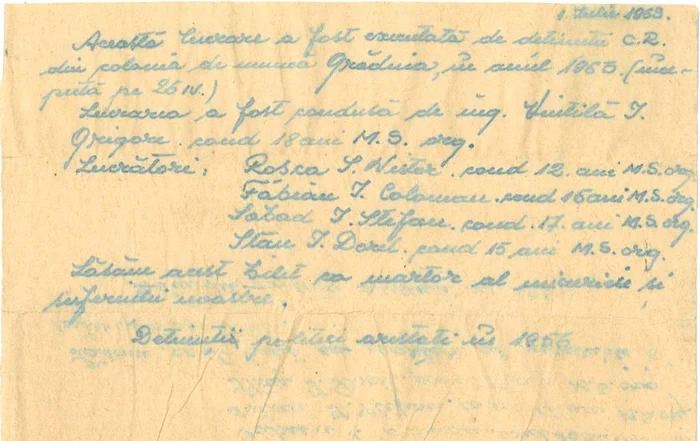 1 Iulie 1963.
Această lucrare a fost executată de deținuții C.R.
din colonia de muncă Grădina, în anul 1963 (înce-
pută pe 26 IV.)
Lucrarea a fost condusă de ing. Vintilă I.
Grigore. cond 18 ani M.S. org.
Lucrători: Roșca S. Nistor. cond 12. ani M.S. org.
Fábián I. Coloman. cond 16 ani M.S. org.
Sabad I. Ștefan. cond. 17. ani M.S. org.
Stan I. Dorel. cond 15 ani M.S. org.
Lăsăm acest bilet ca martor al muncii și
suferinții noastre.
Deținuții politici arestați în 1956